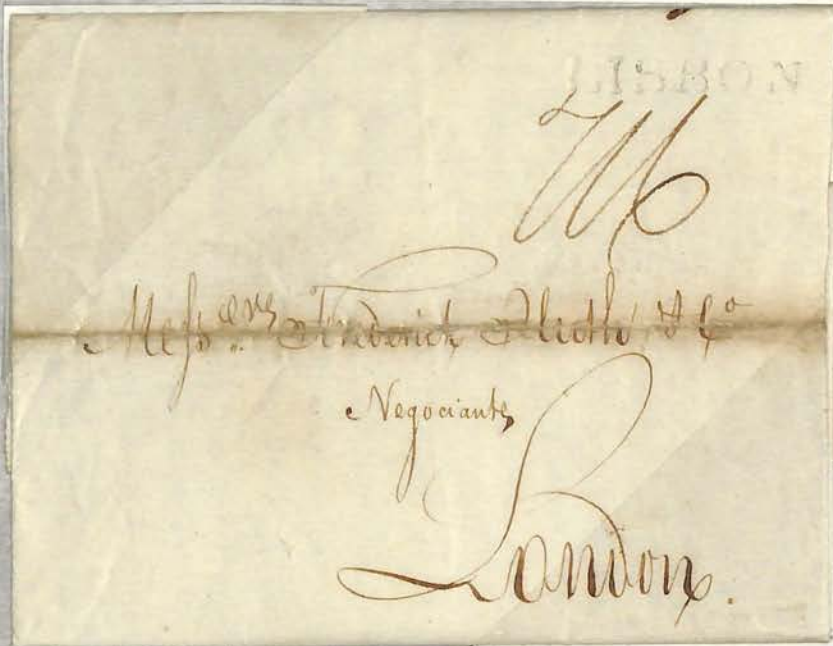 LISBON
Mess.ers Frederick Huth & Co
Negociants
London.